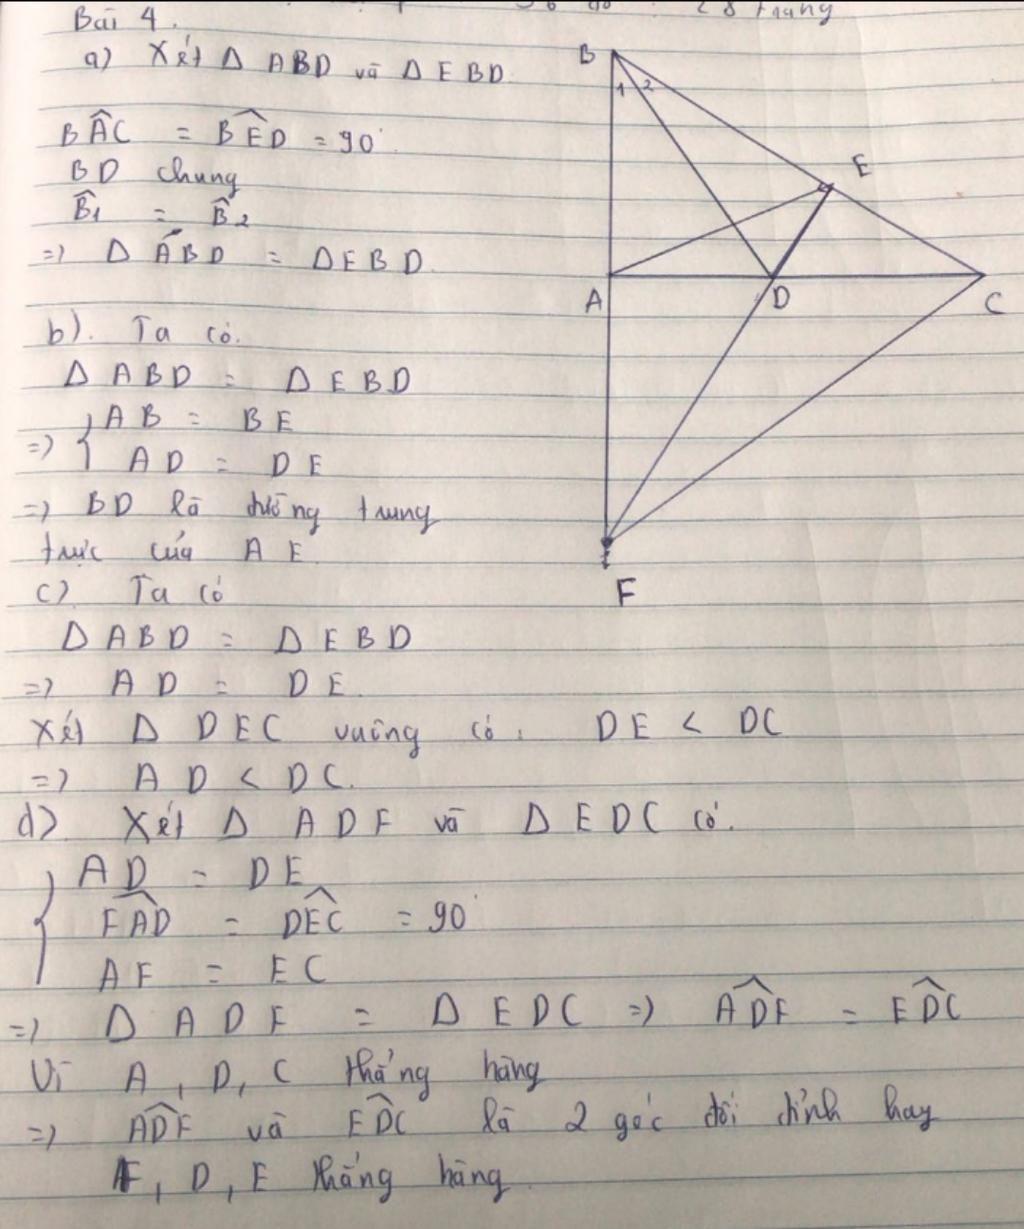 28 trang
Bài 4.
a) Xét Δ ABD và Δ EBD
BÂC = BÊD = 90°
BD chung
B̂1 = B̂2
=> Δ ABD = Δ EBD
b). Ta có.
Δ ABD = Δ EBD
=> { AB = BE
AD = DE
=> BD là đường trung
trực của AE
c) Ta có
Δ ABD = Δ EBD
=> AD = DE
Xét Δ DEC vuông có: DE < DC
=> AD < DC.
d) Xét Δ ADF và Δ EDC có.
{ AD = DE
FÂD = DÊC = 90°
AF = EC
=> Δ ADF = Δ EDC => AD̂F = ED̂C
Vì A, D, C thẳng hàng
=> AD̂F và ED̂C là 2 góc đối đỉnh hay
F, D, E thẳng hàng.
B
1 2
E
A
D
C
F